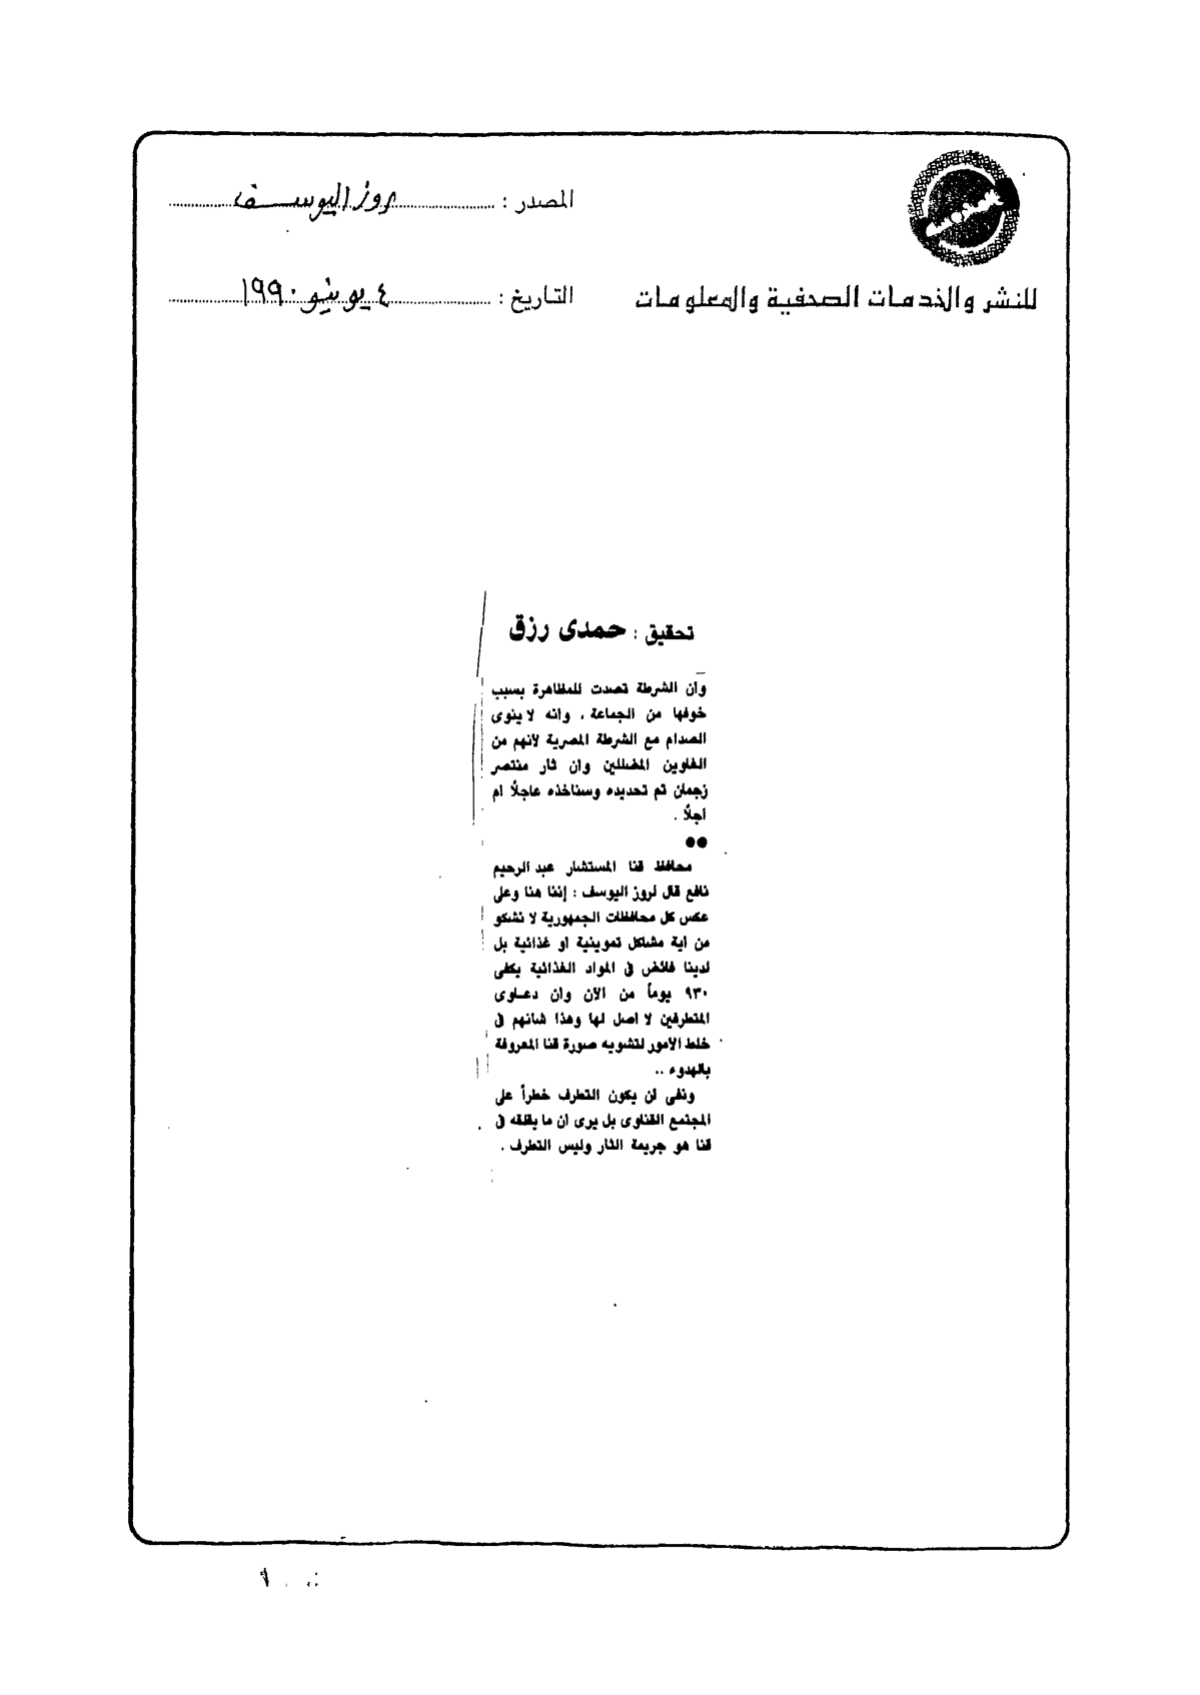 المصدر : روز اليوسف
للنشر والخدمات الصحفية والمعلومات
التاريخ : ٤ يونيو ١٩٩٠
تحقيق : حمدى رزق
وان الشرطة تصدت للمظاهرة بسبب
خوفها من الجماعة ، وانه لا ينوى
الصدام مع الشرطة المصرية لأنهم من
الغاوين المضللين وان ثار منتصر
زجمان تم تحديده وسناخذه عاجلاً ام
اجلاً .
●●
محافظ قنا المستشار عبد الرحيم
نافع قال لروز اليوسف : إننا هنا وعلى
عكس كل محافظات الجمهورية لا نشكو
من اية مشاكل تموينية او غذائية بل
لدينا فائض فى المواد الغذائية يكفى
٩٣٠ يوماً من الآن وان دعاوى
المتطرفين لا اصل لها وهذا شانهم فى
خلط الأمور لتشويه صورة قنا المعروفة
بالهدوء ..
ونفى ان يكون التطرف خطراً على
المجتمع القناوى بل يرى ان ما يقلقه فى
قنا هو جريمة الثار وليس التطرف .